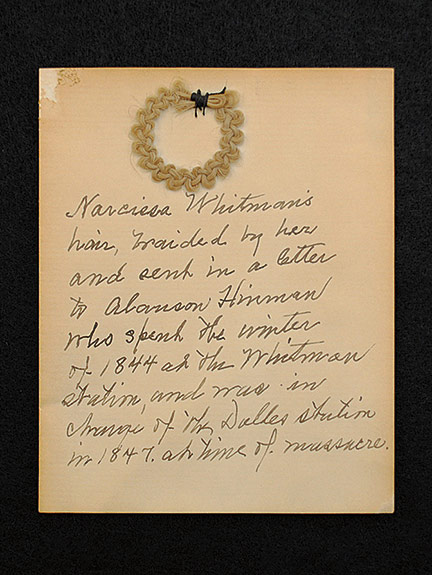 Narcissa Whitman's
hair, braided by her
and sent in a letter
to Alanson Hinman
who spent the winter
of 1844 at the Whitman
station, and was in
charge of the Dalles station
in 1847. at time of massacre.